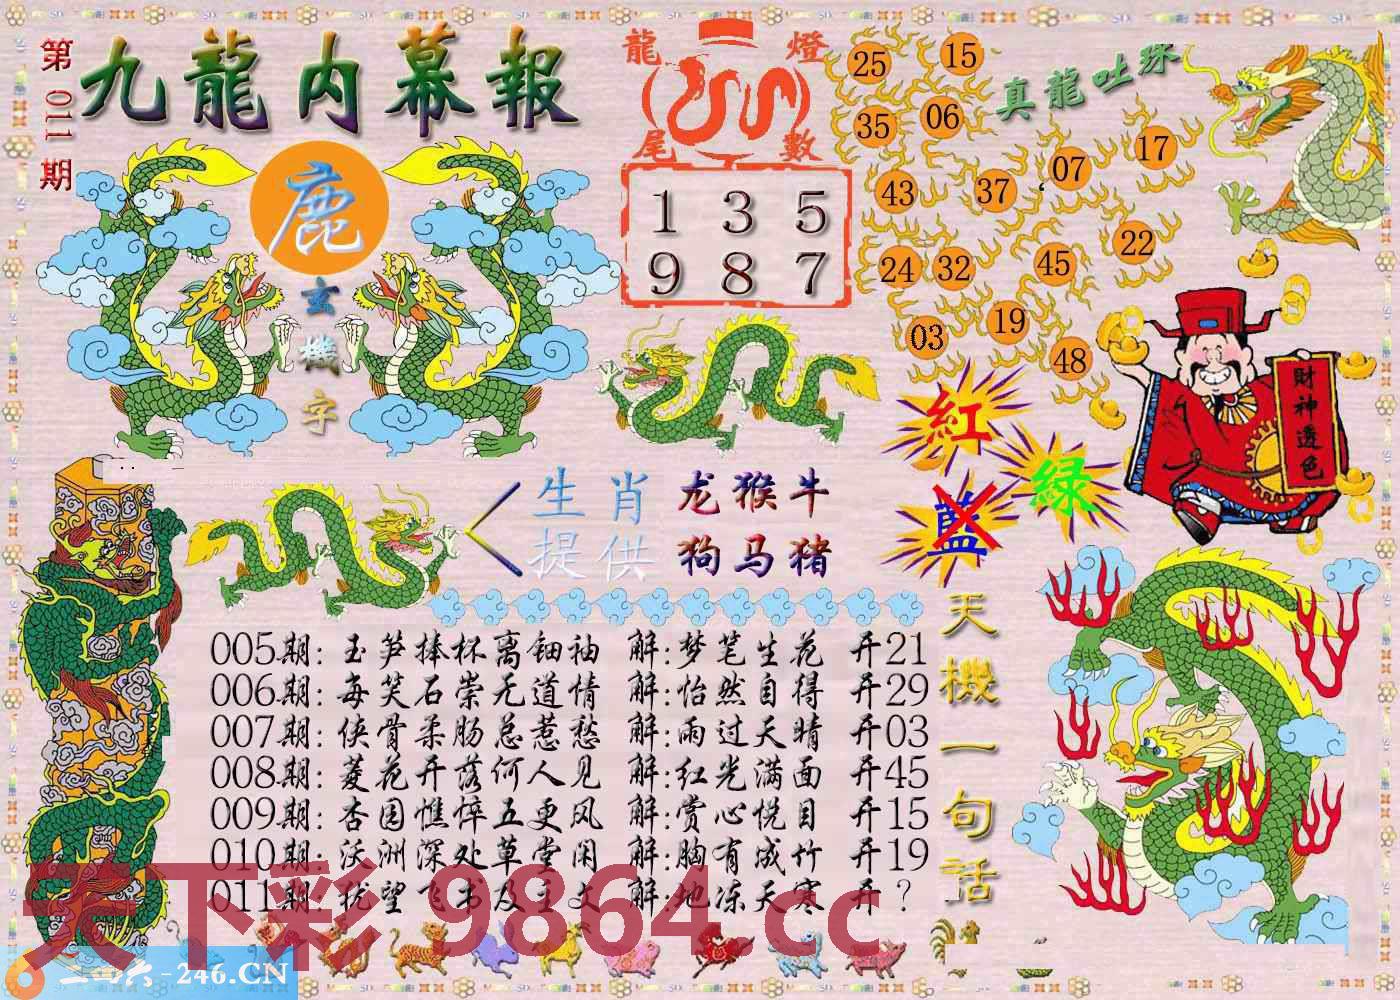 第011期
九龍内幕報
鹿
玄機字
龍燈
尾數
1 3 5
9 8 7
真龍吐珠
25 15
35 06
43 37 07 17
24 32 45 22
03 19 48
財神透色
紅
綠
藍
生肖 龙猴牛
提供 狗马猪
天機一句話
005期: 玉笋捧杯离钿袖 解:梦笔生花 开21
006期: 每笑石崇无道情 解:怡然自得 开29
007期: 侠骨柔肠总惹愁 解:雨过天晴 开03
008期: 菱花开落何人见 解:红光满面 开45
009期: 杏园憔悴五更风 解:赏心悦目 开15
010期: 沃洲深处草堂闲 解:胸有成竹 开19
011期: 犹望飞书及主父 解:地冻天寒 开?
天下彩 9864.cc
二四六-246.CN